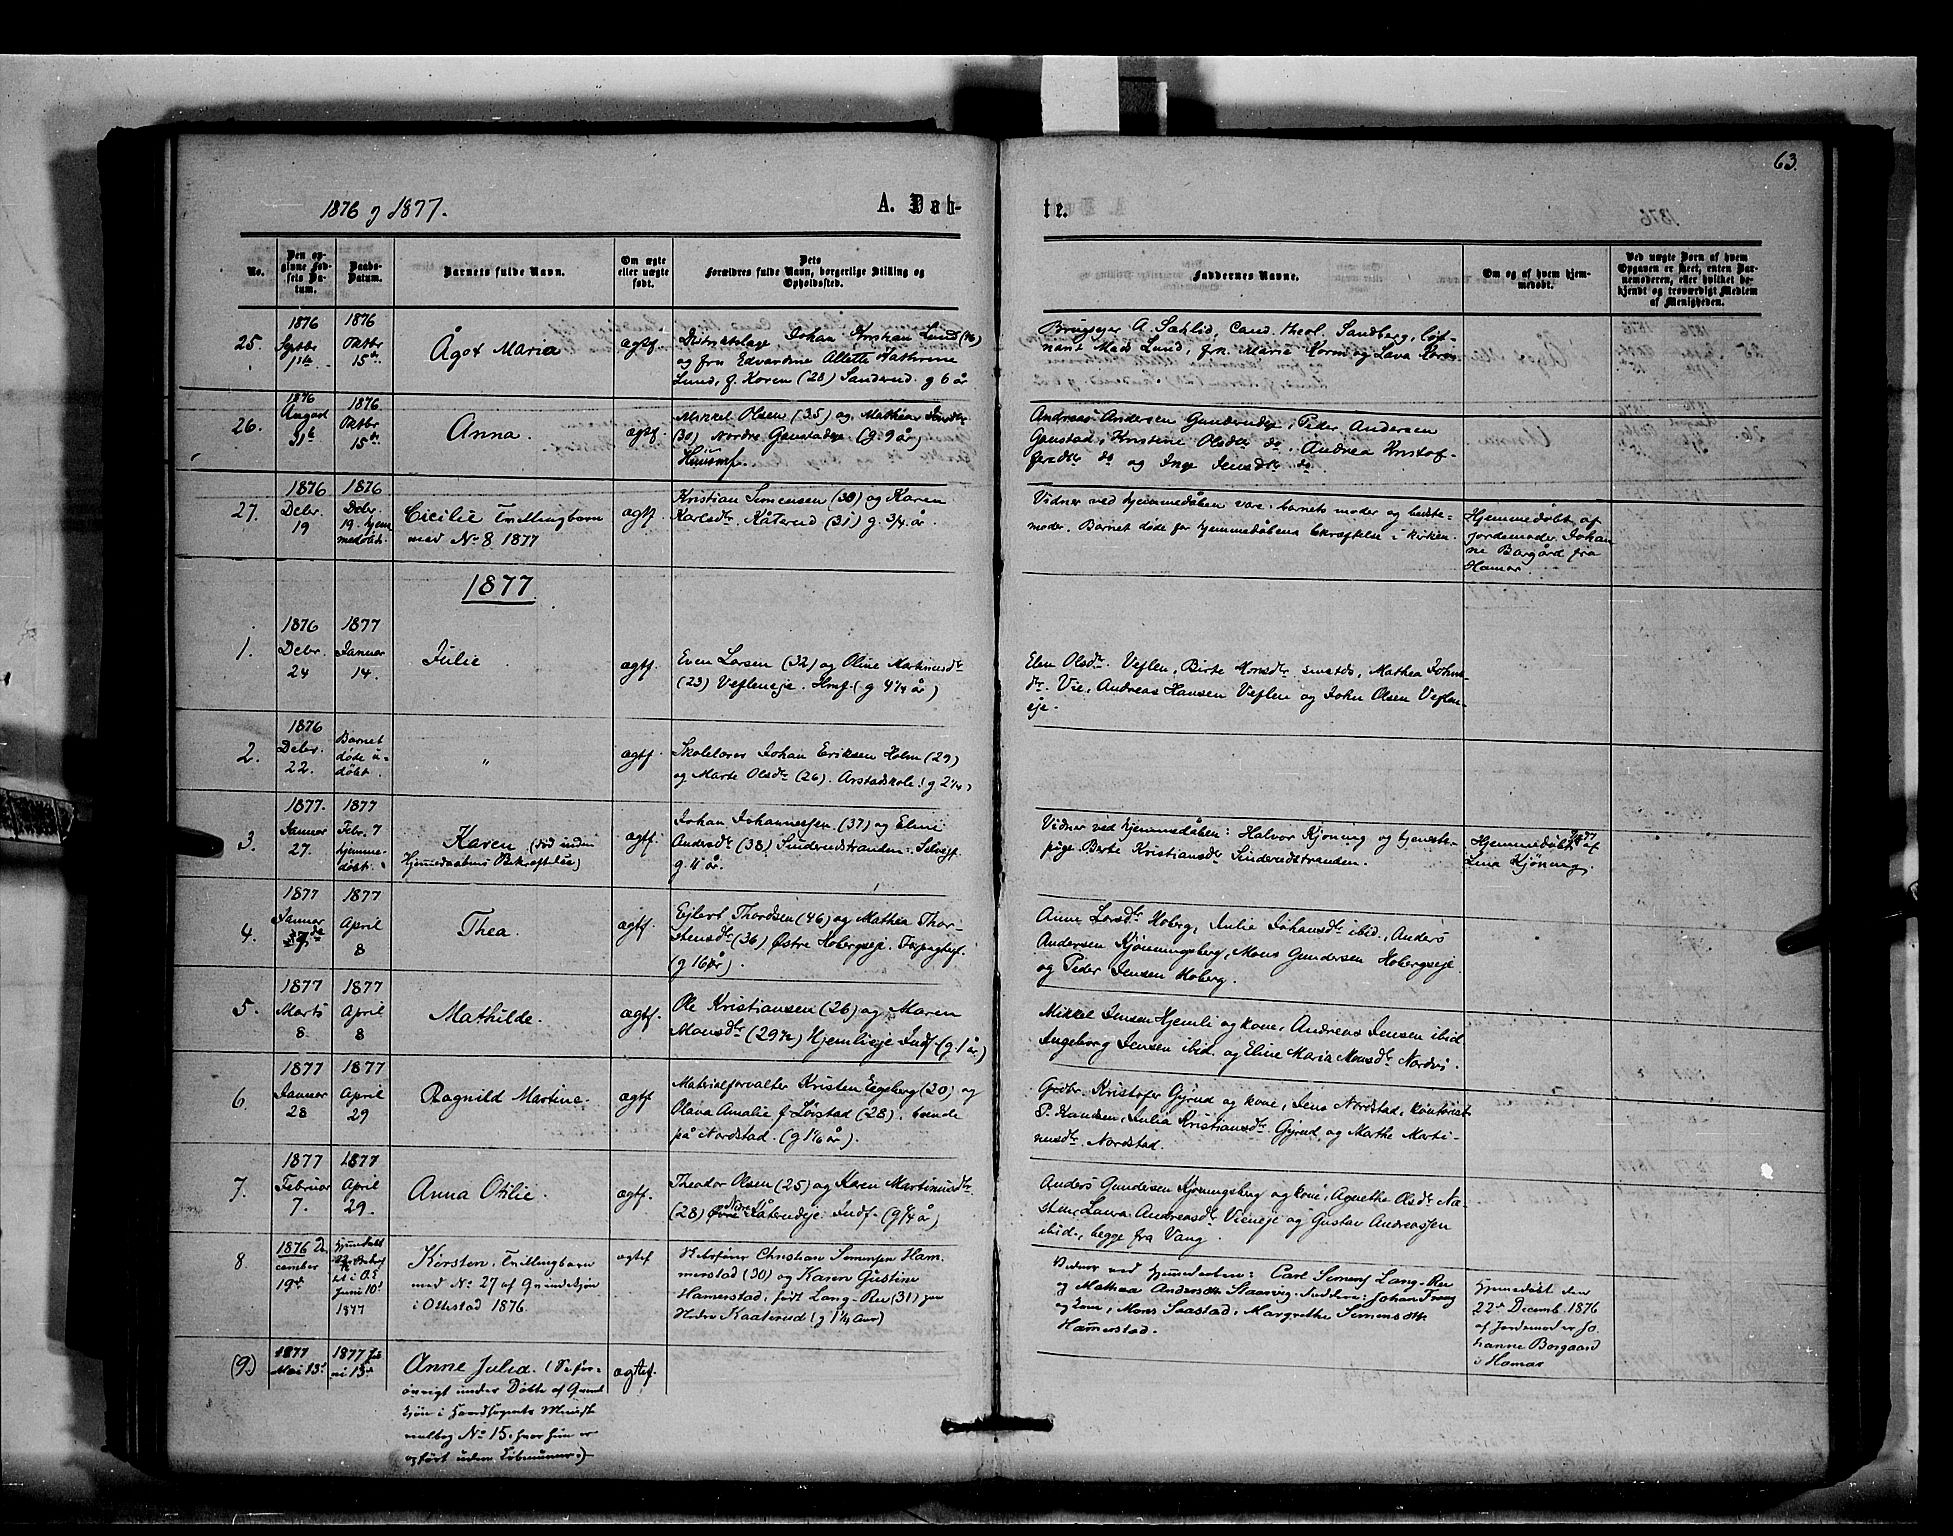 63.
1876 & 1877.
A. Døb-
te.
No.
Den op-
givne Fød-
sels Da-
tum.
Daabs-
Datum.
Barnets fulde Navn.
Om ægte
eller uægte
født.
Dets
Forældres fulde Navn, borgerlige Stilling og
Opholdssted.
Faddernes Navne.
Om og af hvem hjem-
medøbt.
Ved uægte Børn af hvem
Opgaven er skeet, enten Bar-
nemoderen, eller hvilket be-
kjendt og troværdigt Medlem
af Menigheden.
25.
1876
Septbr
1ste
1876
Oktbr
15de
Ågot Maria
ægtf.
Distriktslæge Johan Kristian Lund
og fru Edvardine Alette Kathrine
Lund, f. Koren (28) Sandvend. g 6 år
Brugseier A. Sæhlid, Cand. theol. Sandberg, løjt-
nant Mads Lund, frk. Marie Koren og Lava Koren
26.
1876
August
31te
1876
Oktbr
15de
Anna.
ægtf.
Mikkel Olsen (35) og Mathea
(30) Nordre Gaustadeje. (g. 9 år)
Husmf.
Andreas Andersen Gundveneje, Peder Andersen
Gaustad, Kristine Olsdtr do, Andrea Kristof-
fersdtr do og Inge Jensdtr do
27.
1876
Debr.
19
1876
Debr.
19. hjem-
medøbt.
Cicilie Tvillingbarn
med No 8 1877
ægtf.
Kristian Simensen (30) og Karen
Karlsdtr. Kåterud (31) g. 3/4 år.
Vidner ved hjemmedåben vare: barnets moder og bedste-
moder. Barnet døde før hjemmedåbens bekræftelse i kirken.
Hjemmedøbt af
jordemoder Johan
ne Borgård fra
Hamar.
1877
1.
1876
Debr.
24
1877
Januar
14.
Julie
ægtf.
Even Larsen (32) og Oline Martinusdtr
(23) Vefleneje. Hmf. (g 4 1/4 år)
Elen Olsdtr. Veflen, Birte Monsdtr. smstds, Mathea Johns-
dtr. Vie, Andreas Hansen Veflen og John Olsen Veflen-
eje.
2.
1876
Debr.
22.
Barnet
døde u-
døbt.
"
ægtf.
Skolelærer Johan Eriksen Holm (29)
og Marte Olsdtr (26). Arstadskole. (g 2 1/4)
3.
1877.
Januar
27.
1877
Febr. 7
hjemme-
døbt.
Karen (død inden
Hjemmedaabens Bekræftelse)
ægtf.
Johan Johannessen (37) og Eline
Andersdtr (38) Sinderudstranden. Selvejf.
g. 11 år.
Vidner ved hjemmedåben: Halvor Kjøning og tjeneste-
pige Birte Kristiansdtr Sinderudstranden.
Hjemmedøbt af
Lina Kjøning.
4.
1877
Januar
1877
April
8
Thea.
ægtf.
Ejlert Thordsen (46) og Mathia Thor-
stensdtr (36) Østre Hobergseje. Forpagterf.
(g 16 år).
Anne Larsdtr Hoberg, Julie Johansdtr ibid., Anders
Andersen Kjønningsberg, Mons Gundersen Hobergseje
og Peder Jensen Hoberg.
5.
1877
Marts
8.
1877
April
8
Mathilde.
ægtf.
Ole Kristiansen (26) og Maren
Monsdtr (29 1/2) Hjemlieje Indf. (g. 1 år)
Mikkel Jensen Hjemli og kone, Andreas Jensen ibid
Ingeborg Jensen ibid. og Eline Maria Monsdtr Nordvi.
6.
1877
Januar
28
1877
April
29
Ragnild Martine.
ægtf.
Materialforvalter Kristen Eigsberg (30) og
Olava Amalie f. Løistad (28). boende
på Nordstad. (g 1 1/6 år).
Grdbr. Kristofer Gyrud og kone, Jens Nordstad, kontorist
P. Knudsen, Julia Kristiansdtr Gyrud, og Mathe Marti-
nusdtr. Nordstad.
7.
1877
Februar
7.
1877
April
29.
Anna Otilie.
ægtf.
Theodor Olsen (25) og Karen Martinusdtr
(28) Øvre Nedre Kåterudeje. Indf. (g 1/4 år)
Anders Gundersen Kjønningsberg og kone, Agnethe Olsdtr Næ-
sten, Laura Andreasdtr Vieneje og Gustav Andreassen
ibid., begge fra Vang.
8.
1876 De-
cember
19de
Hjemmedøbt
Juni 10de
1877
Kirsten, Tvillingbarn
med No 27 af Grundeskjøn
i Ottestad 1876.
ægtef.
Christian Simensen Ham-
merstad (30) og Karen Gustine
Hamerstad, født Lang-Ree (31) paa
Nedre Kaaterud (g 1 1/4 Aar)
Vidner ved Hjemmedaaben: Carl Simens Lang-Ree
og Mathea Andersdtr Staarvig. Faddere: Johan Frang
og kone, Mons Saastad, Margrethe Simensdtr
Hamerstad.
Hjemmedøbt den
22de Decemb. 1876
af Jordemoder Jo-
hanne Borgaard
i Hamar
(9.)
1877
Mai 13de
1877 Ju-
ni 13de
Anne Julia. (Se for-
øvrigt under Døbte af Qvind
kjøn i Hovedsognets Minist-
erialbog No 15, hvor hun er
opført uden Løbenummer.)
ægtef.